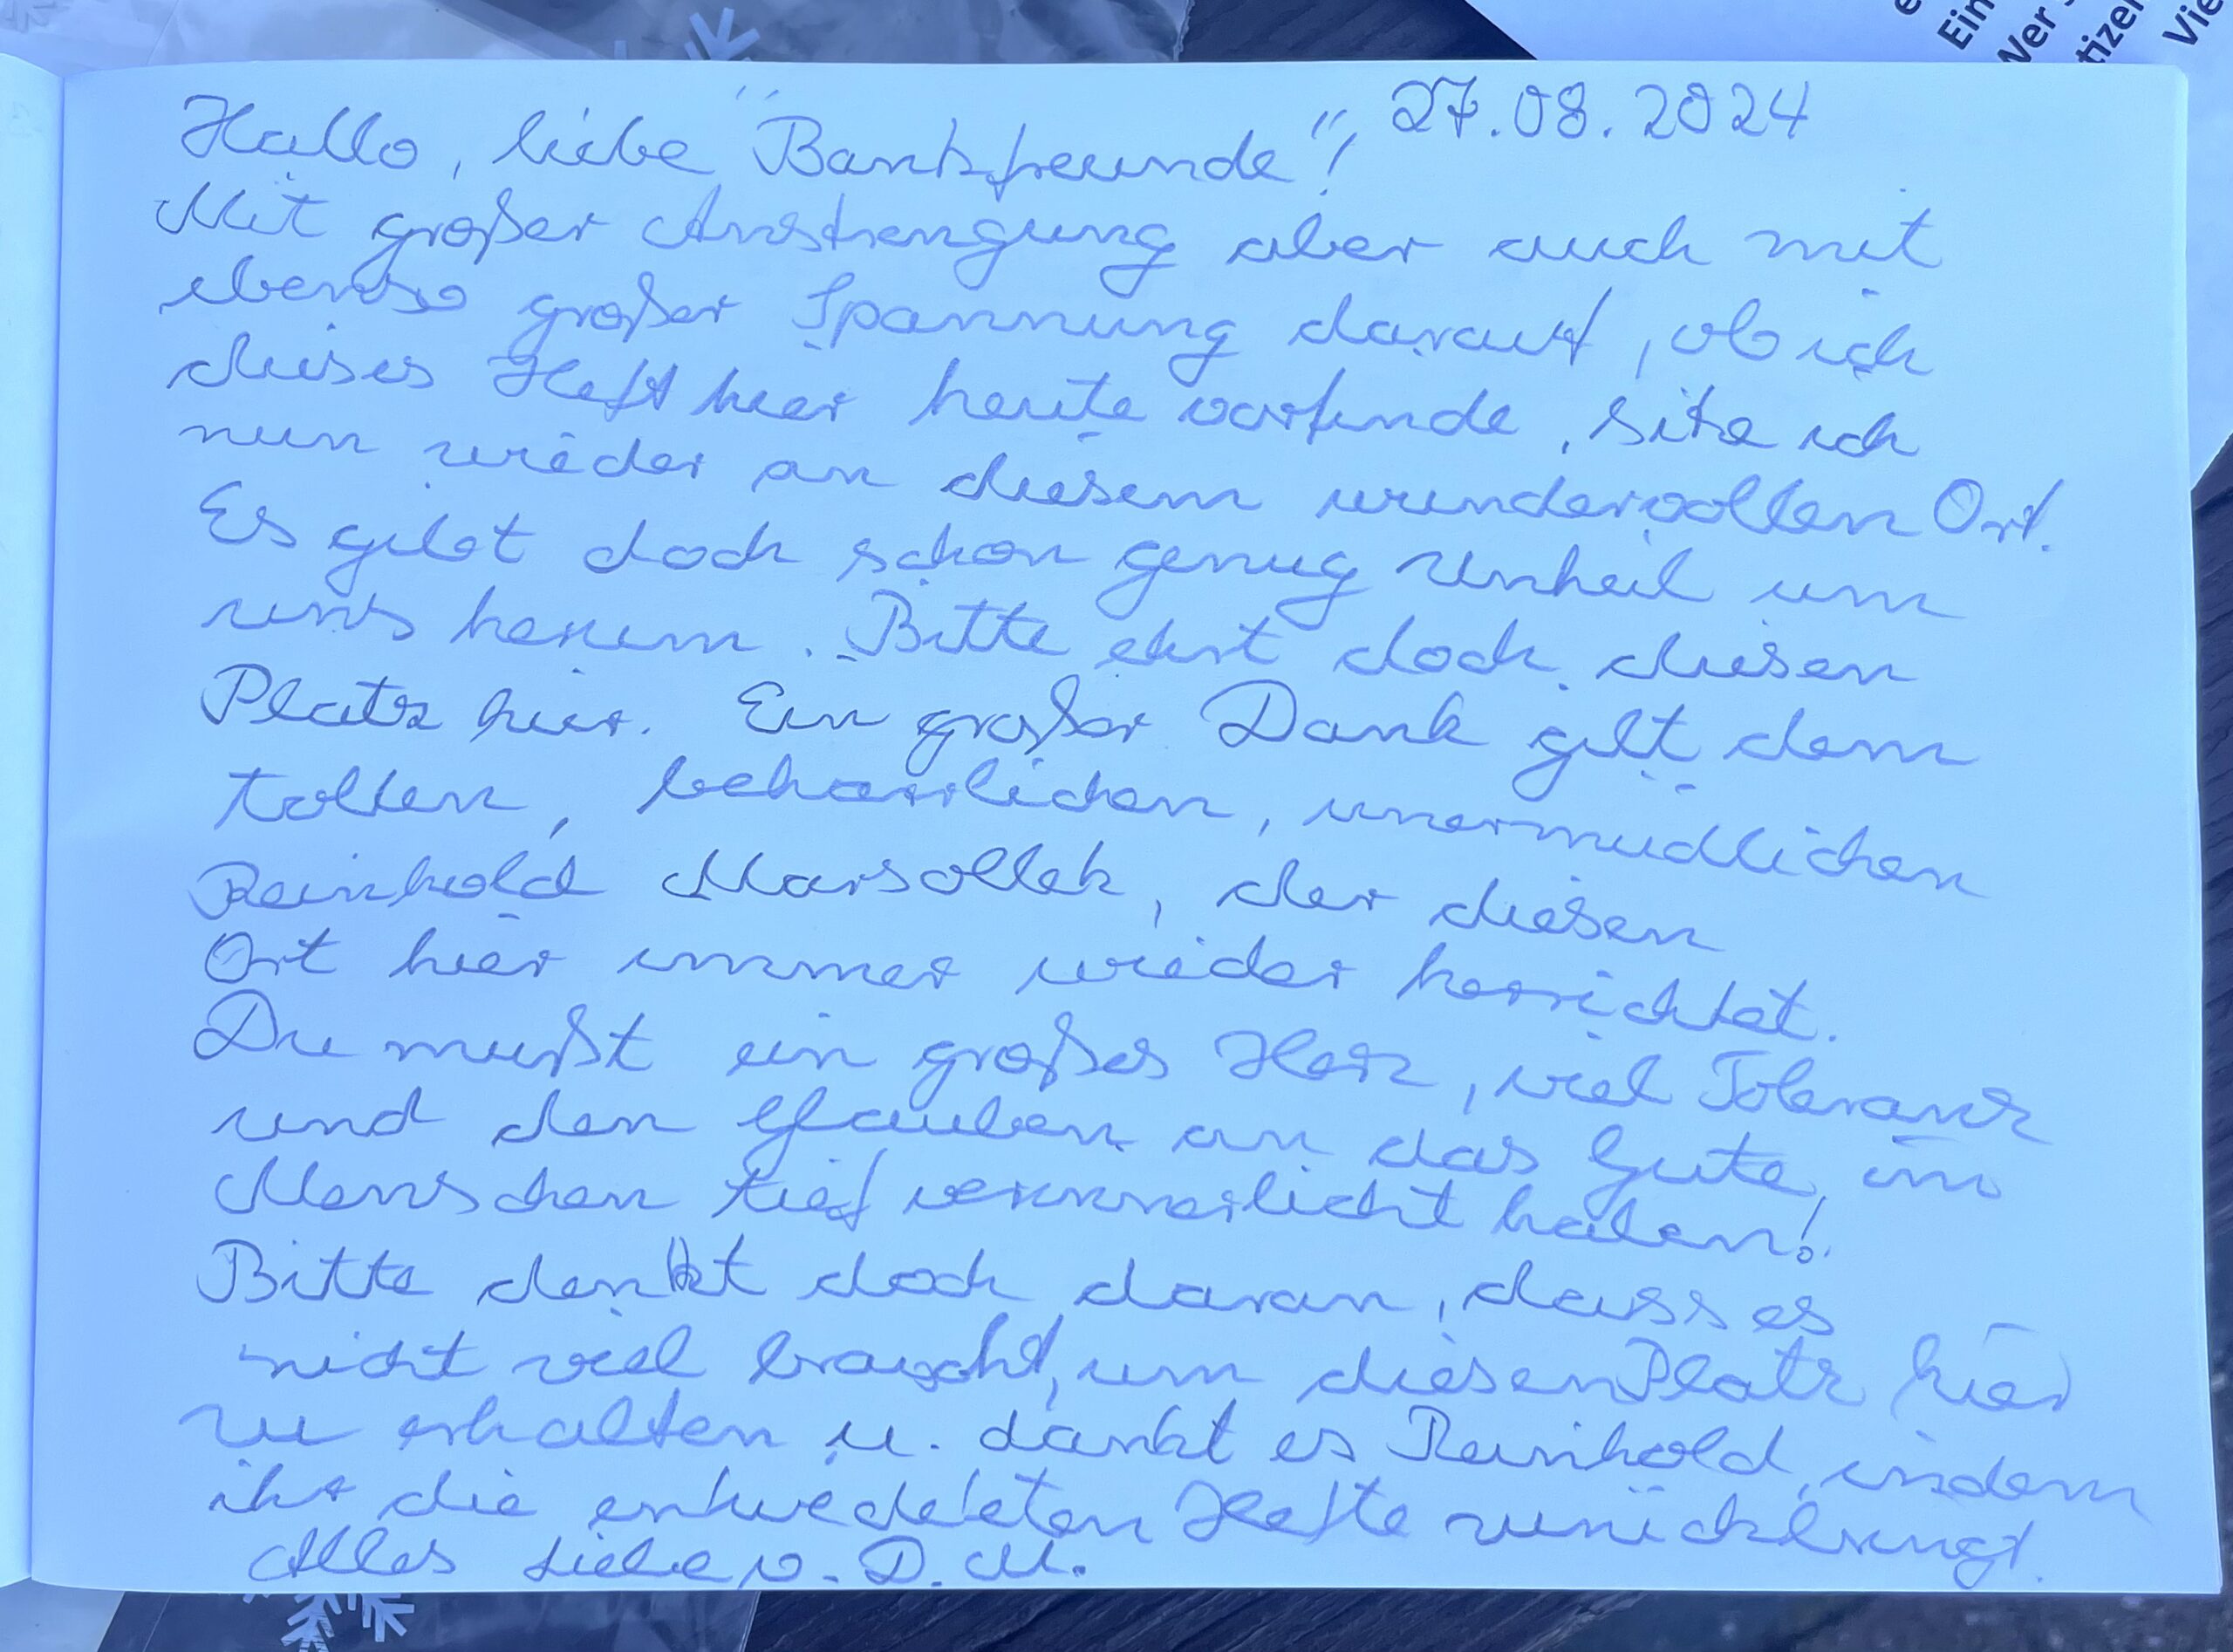 Ein
Wer
tizen
Vie
27.08.2024
Hallo, liebe "Bankfreunde"!
Mit großer Anstrengung aber auch mit
ebenso großer Spannung darauf, ob ich
dieses Heft hier heute vorfinde, sitze ich
nun wieder an diesem wundervollen Ort.
Es gibt doch schon genug Unheil um
uns herum. Bitte ehrt doch diesen
Platz hier. Ein großer Dank gilt dem
tollen, beharrlichen, unermüdlichen
Reinhold Marsollek, der diesen
Ort hier immer wieder herrichtet.
Du mußt ein großes Herz, viel Toleranz
und den Glauben an das Gute im
Menschen tief verinnerlicht haben!
Bitte denkt doch daran, dass es
nicht viel braucht, um diesen Platz hier
zu erhalten u. dankt es Reinhold, indem
ihr die entwedeten Hefte zurückbringt.
Alles Liebe v. D. M.